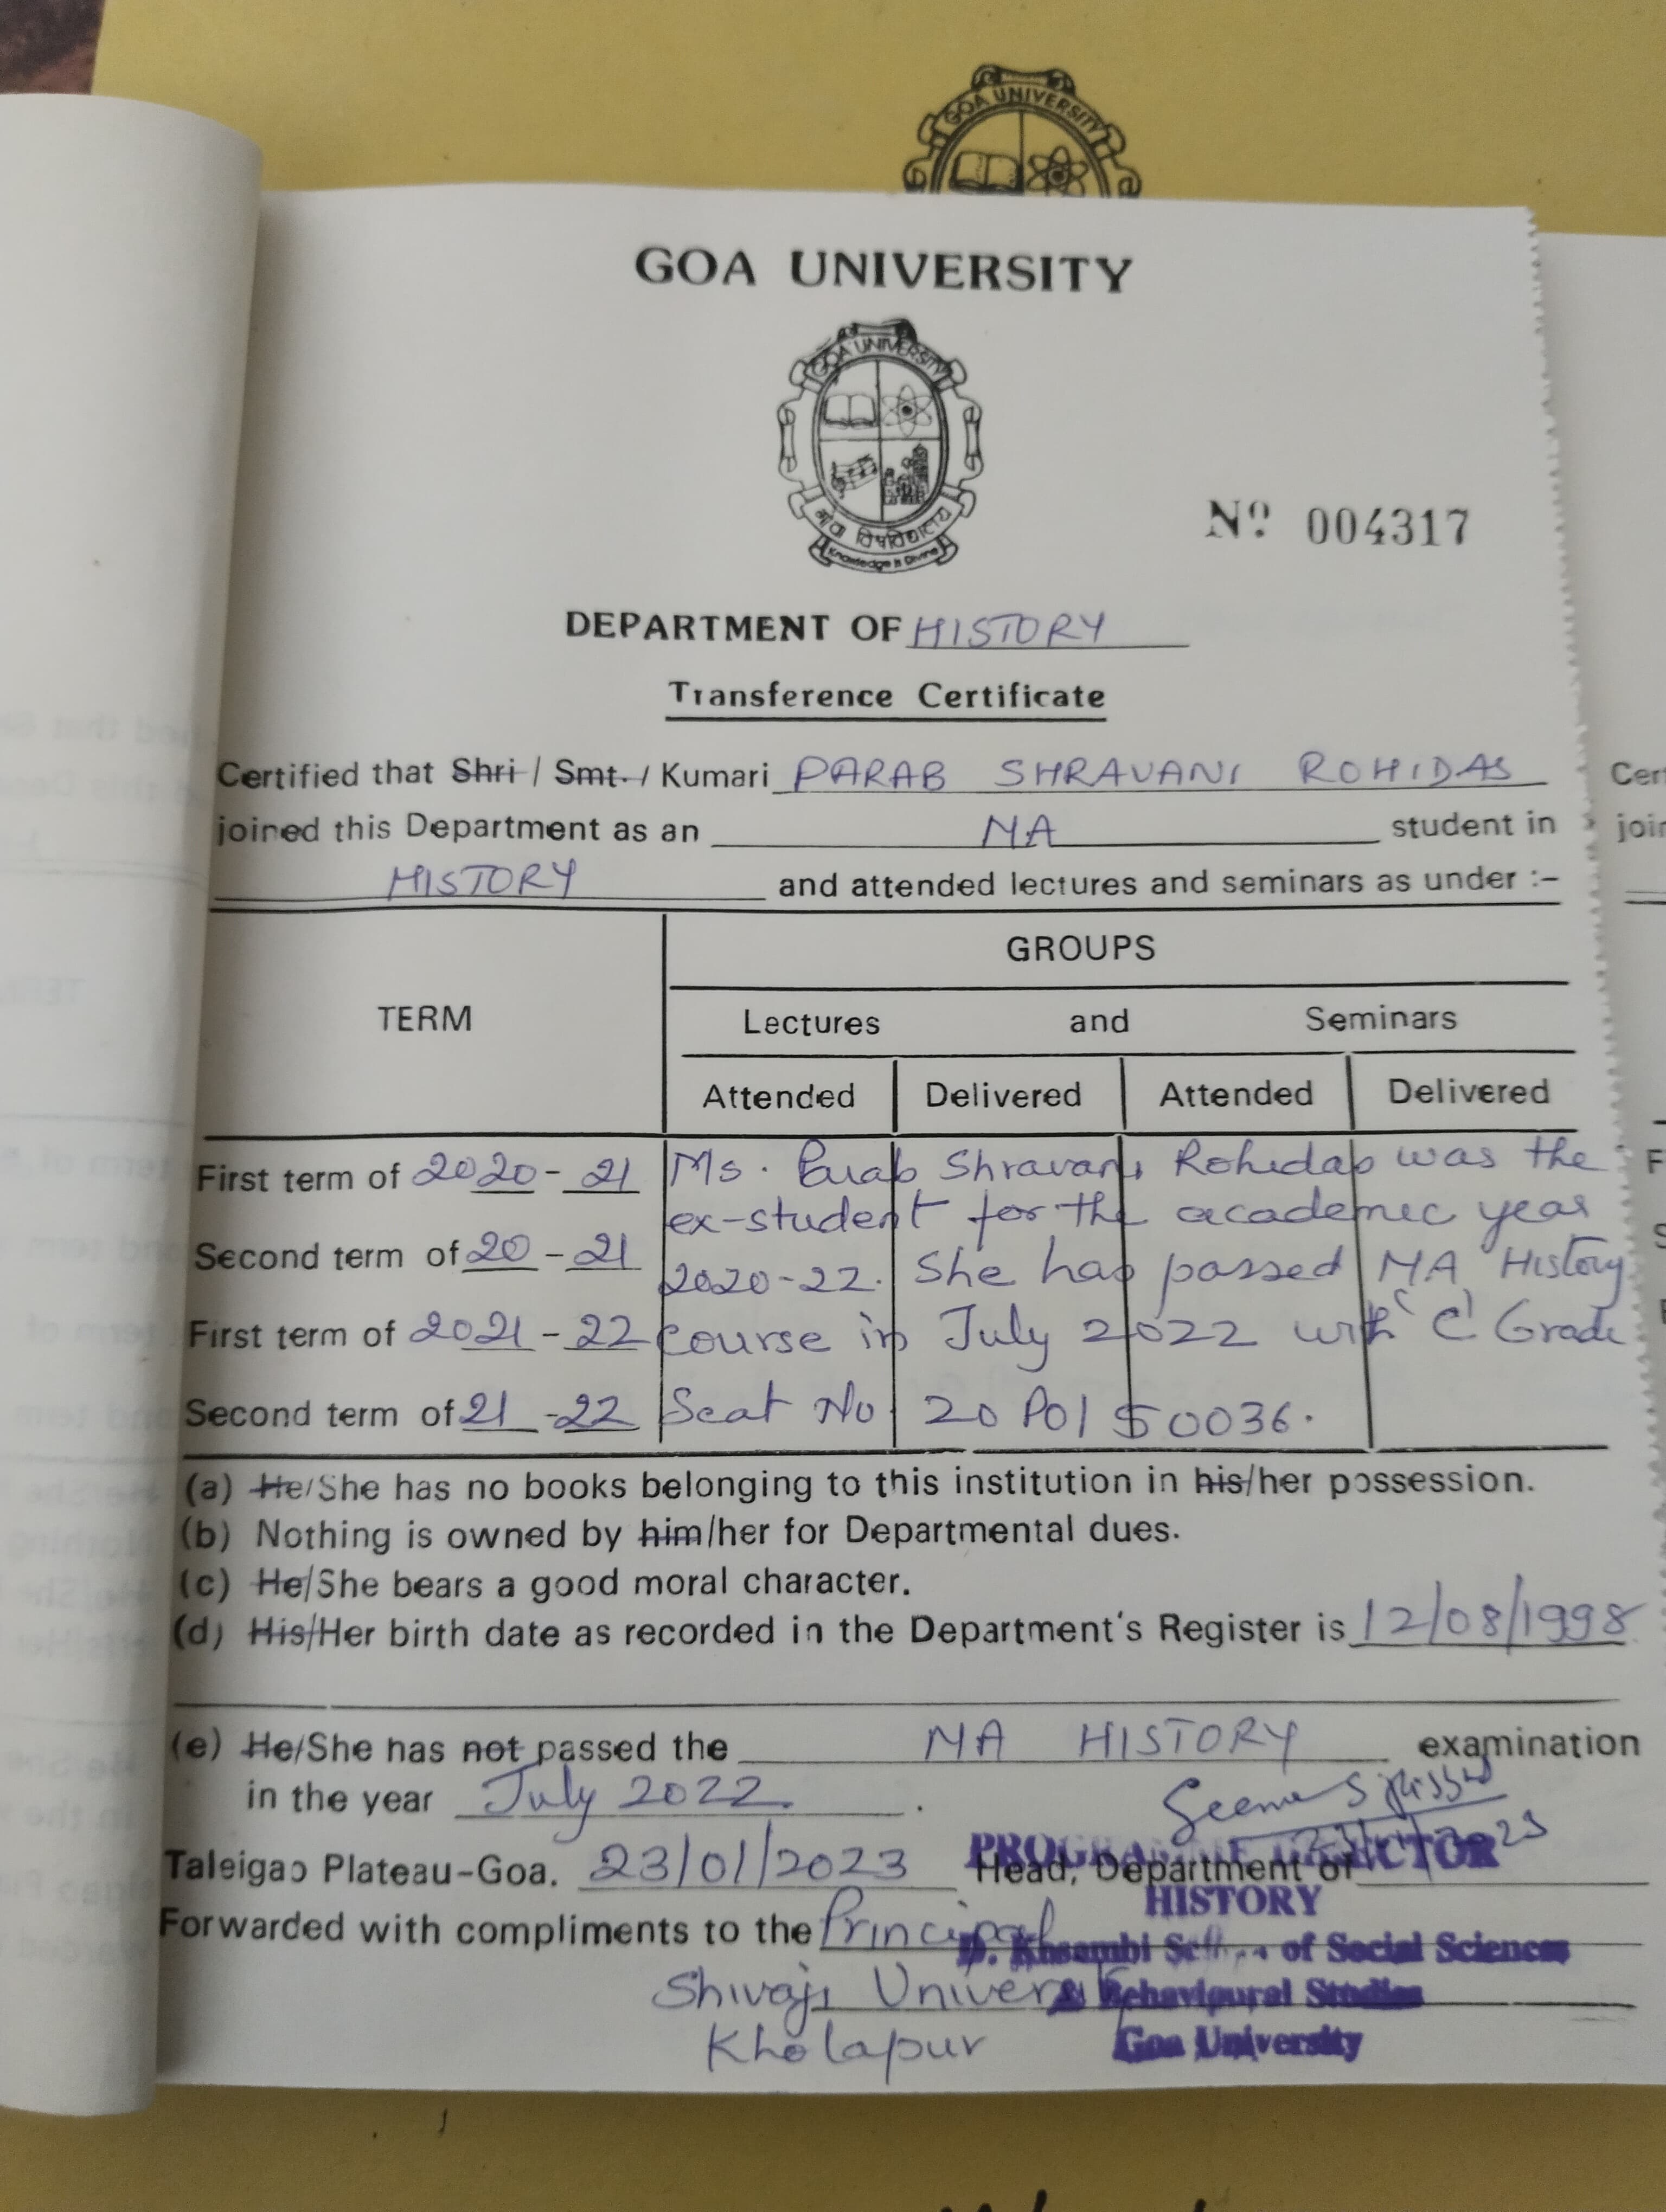 GOA UNIVERSITY
GOA UNIVERSITY
GOA UNIVERSITY
गोंय विश्वविद्यालय
Knowledge is Divine
Nº 004317
DEPARTMENT OF HISTORY
Transference Certificate
Certified that Shri / Smt. / Kumari PARAB SHRAVANI ROHIDAS
joined this Department as an MA student in
HISTORY and attended lectures and seminars as under :-
GROUPS
TERM
Lectures and Seminars
Attended Delivered Attended Delivered
First term of 2020-21 Ms. Parab Shravani Rohidas was the
ex-student for the academic year
Second term of 20-21
2020-22. She has passed MA History
First term of 2021-22 course in July 2022 with 'C' Grade
Second term of 21-22 Seat No 20 P01 50036.
(a) He/She has no books belonging to this institution in his/her possession.
(b) Nothing is owned by him/her for Departmental dues.
(c) He/She bears a good moral character.
(d) His/Her birth date as recorded in the Department's Register is 12/08/1998
(e) He/She has not passed the MA HISTORY examination
in the year July 2022.
Taleigao Plateau-Goa. 23/01/2023 Head, Department of
PROGRAMME DIRECTOR
HISTORY
Forwarded with compliments to the Principal
of Social Sciences
Shivaji University
& Behavioural Studies
Kholapur
Goa University